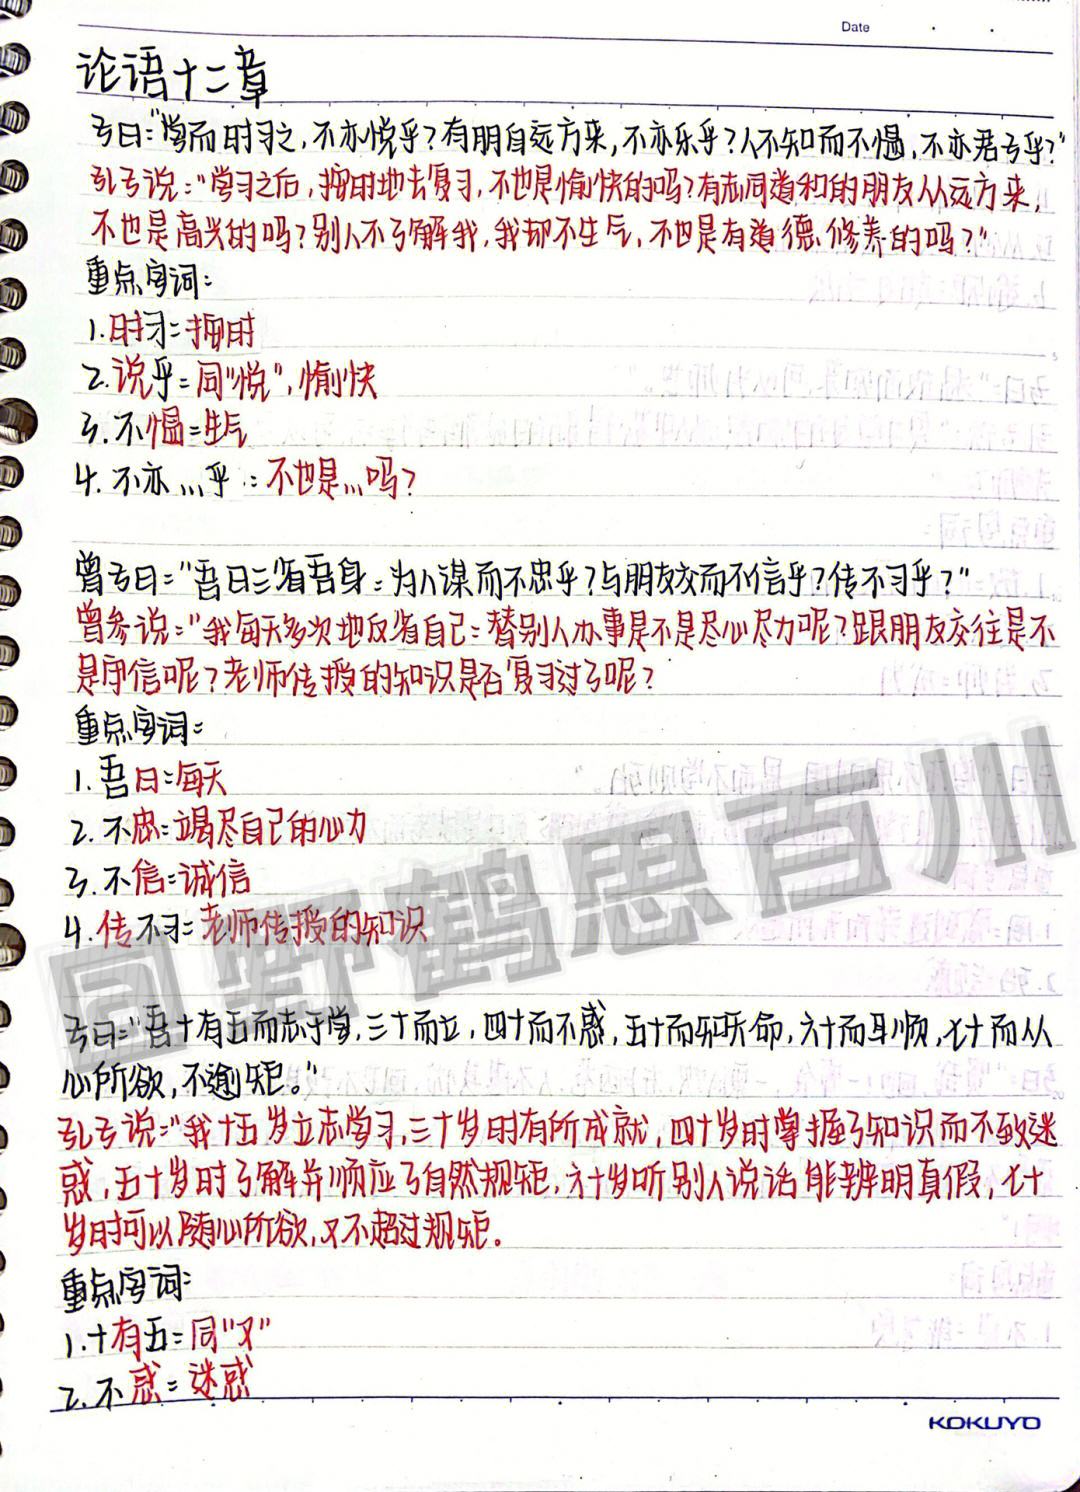 Date
论语十二章
子曰："学而时习之，不亦悦乎？有朋自远方来，不亦乐乎？人不知而不愠，不亦君子乎？"
孔子说："学习之后，按时地去复习，不也是愉快的吗？有志同道和的朋友从远方来，
不也是高兴的吗？别人不了解我，我却不生气，不也是有道德修养的吗？"
重点字词：
1.时习：按时
2.说乎：同"悦"，愉快
3.不愠：生气
4.不亦…乎：不也是…吗？
曾子曰："吾日三省吾身：为人谋而不忠乎？与朋友交而不信乎？传不习乎？"
曾参说："我每天多次地反省自己：替别人办事是不是尽心尽力呢？跟朋友交往是不
是守信呢？老师传授的知识是否复习过了呢？
重点字词：
1.吾日：每天
2.不忠：竭尽自己的心力
3.不信：诚信
4.传不习：老师传授的知识
回野鹤思百川
子曰："吾十有五而志于学，三十而立，四十而不惑，五十而知天命，六十而耳顺，七十而从
心所欲，不逾矩。"
孔子说："我十五岁立志学习，三十岁时有所成就，四十岁时掌握了知识而不致迷
惑，五十岁时了解并顺应了自然规矩，六十岁听别人说话能辨明真假，七十
岁时可以随心所欲，又不超过规矩。
重点字词：
1.十有五：同"又"
2.不惑：迷惑
KOKUYO